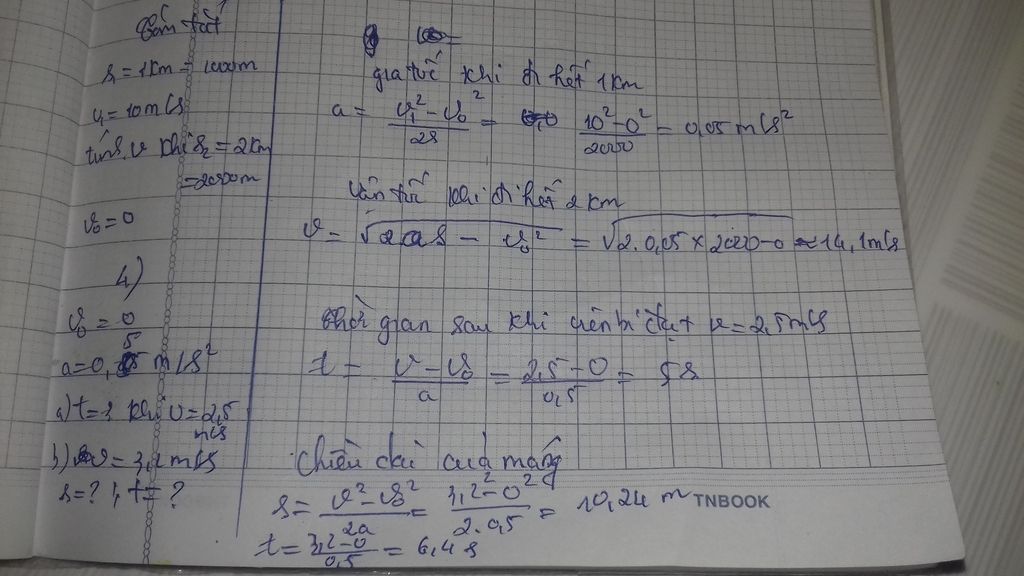 Tóm tắt
s₁ = 1km = 1000m
v₁ = 10m/s
tính v khi s₂ = 2km
= 2000m
v₀ = 0
4)
v₀ = 0
a = 0,5 m/s²
a) t = ? khi v = 2,5
m/s
b) v = 3,2 m/s
s = ? , t = ?
gia tốc khi đi hết 1km
a = (v₁² - v₀²)/2s = (10² - 0²)/2000 = 0,05 m/s²
Vận tốc khi đi hết 2km
v = √(2as - v₀²) = √(2.0,05 × 2000-0) ≈ 14,1m/s
thời gian sau khi viên bi đạt v = 2,5m/s
t = (v - v₀)/a = (2,5 - 0)/0,5 = 5s
Chiều dài của máng
s = (v² - v₀²)/2a = (3,2² - 0²)/2.0,5 = 10,24 m
TNBOOK
t = (3,2 - 0)/0,5 = 6,4s